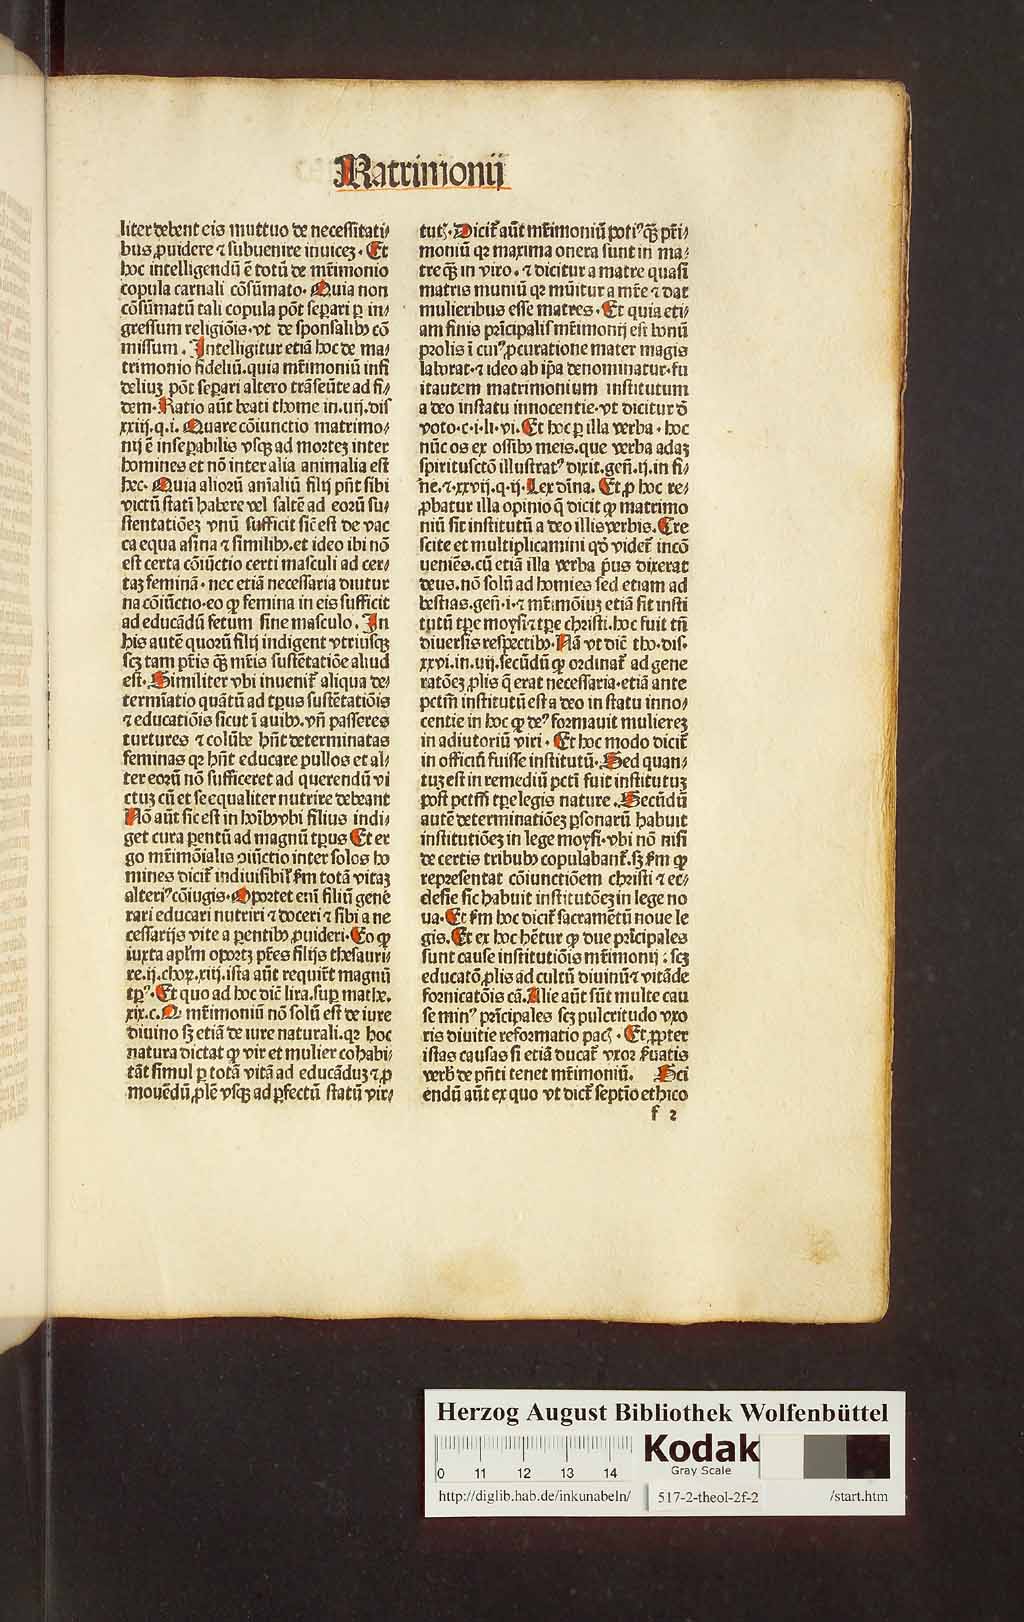 Matrimonij
liter debent eis muttuo de necessitati/
bus ꝓuidere ⁊ subuenire inuicez. Et
hoc intelligendū ē totū de mr̄imonio
copula carnali cōsūmato. Quia non
cōsūmatū tali copula pōt separi ꝑ in/
gressum religiōis. vt de sponsalibꝰ cō
missum. Intelligitur etiā hoc de ma/
trimonio fideliū. quia mr̄imoniū infi
deliuz pōt separi altero trāseūte ad fi/
dem. Ratio aūt beati thome in. iiij. dis
xxiij. q. i. Quare cōiunctio matrimo/
nij ē inseꝑabilis vsqꝫ ad mortez inter
homines et nō inter alia animalia est
hec. Quia aliorū aīaliū filij pn̄t sibi
victū statī habere vel saltē ad eorū su/
stentatiōez vnū sufficit sic̄ est de vac
ca equa asina ⁊ similibꝰ. et ideo ibi nō
est certa cōiūctio certi masculi ad cer/
taz feminā. nec etiā necessaria diutur
na cōiūctio. eo ꝙ femina in eis sufficit
ad educādū fetum sine masculo. In
his autē quorū filij indigent vtriusqꝫ
scꝫ tam pr̄is qꝫ̄ mr̄is sustētatiōe aliud
est. Similiter vbi inuenit᷑ aliqua de/
termīatio quātū ad tꝑus sustētatiōis
⁊ educatiōis sicut ī auibꝰ. vn̄ passeres
turtures ⁊ colūbe hn̄t determinatas
feminas qꝛ hn̄t educare pullos et al/
ter eorū nō sufficeret ad querendū vi
ctuz cū et se equaliter nutrire debeant
Nō aūt sic est in hoībꝰ vbi filius indi/
get cura ꝑentū ad magnū tꝑus Et er
go mr̄imōialis ꝯiūctio inter solos ho
mines dicit᷑ indiuisibil᷑ ẜm totā vitaz
alteriꝰ cōiugis. Oportet enī filiū gene
rari educari nutriri ⁊ doceri ⁊ sibi a ne
cessarijs vite a ꝑentibꝰ ꝓuideri. Eo ꝙ
iuxta apl̄m oportꝫ pr̄es filijs thesauri/
re. ij. choꝝ. xiij. ista aūt requir̄t magnū
tꝑꝰ. Et quo ad hoc dic̄ lira. suꝑ mathe.
xix. c. Q mr̄imoniū nō solū est de iure
diuino sꝫ etiā de iure naturali. qꝛ hoc
natura dictat ꝙ vir et mulier cohabi/
tāt simul ꝑ totā vitā ad educāduz ⁊ ꝓ
mouēdū ꝓlē vsqꝫ ad ꝑfectū statū vir/
tutꝭ. Dicit᷑ aūt mr̄imoniū potiꝰ qꝫ̄ pr̄i/
moniū qꝛ maxima onera sunt in ma/
tre qꝫ̄ in viro. ⁊ dicitur a matre quasi
matris muniū qꝛ mūitur a mr̄e ⁊ dat
mulieribus esse matres. Et quia eti/
am finis prīcipalis mr̄imonij est bonū
prolis ī cuiꝰ ꝓcuratione mater magis
laborat. ⁊ ideo ab ip̄a denominatur. fu
it autem matrimonium institutum
a deo in statu innocentie. vt dicitur d̄
voto. c. i. li. vi. Et hoc ꝑ illa verba. hoc
nūc os ex ossibꝰ meis. que verba adaz
spiritusctō illustratꝰ dixit. gen̄. ij. in fi/
ne. ⁊. xxvij. q. ij. Lex dīna. Et ꝓ hoc re/
ꝓbatur illa opinio q̄ dicit ꝙ matrimo
niū sit institutū a deo illis verbis. Cre
scite et multiplicamini qd̄ videt᷑ incō
ueniēs. cū etiā illa verba pr̄us dixerat
deus. nō solū ad homies sed etiam ad
bestias. gen̄. i. ⁊ mr̄imōiuz etiā fit insti
tutū tꝑe moysi ⁊ tꝑe christi. hoc fuit tn̄
diuersis respectibꝰ. Nā vt dic̄ tho. dis.
xxvi. in. iiij. secūdū ꝙ ordinat᷑ ad gene
ratōez ꝓlis q̄ erat necessaria. etiā ante
pctm̄ institutū est a deo in statu inno/
centie in hoc ꝙ deꝰ formauit mulierez
in adiutoriū viri. Et hoc modo dicit᷑
in officiū fuisse institutū. Sed quan/
tuz est in remediū pcti fuit institutuz
post pctm̄ tꝑe legis nature. Secūdū
autē determinatiōez ꝑsonarū habuit
institutiōez in lege moysi. vbi nō nisi
de certis tribubꝰ copulabant᷑. sꝫ ẜm ꝙ
representat cōiunctiōem christi ⁊ ec/
clesie sic habuit institutōez in lege no
ua. Et ẜm hoc dicit᷑ sacramētū noue le
gis. Et ex hoc hētur ꝙ due prīcipales
sunt cause institutiōis mr̄imonij: scꝫ
educatō ꝓlis ad cultū diuinū ⁊ vitāde
fornicatōis cā. Alie aūt sūt multe cau
se minꝰ prīcipales scꝫ pulcritudo vxo
ris diuitie reformatio pacꝭ. Et ꝓpter
istas causas si etiā ducat᷑ vxor ẜuatis
verbꝭ de pn̄ti tenet mr̄imoniū. Sci
endū aūt ex quo vt dict᷑ septio ethico
f 2
Herzog August Bibliothek Wolfenbüttel
Kodak
Gray Scale
0 11 12 13 14
http://diglib.hab.de/inkunabeln/ 517-2-theol-2f-2 /start.htm